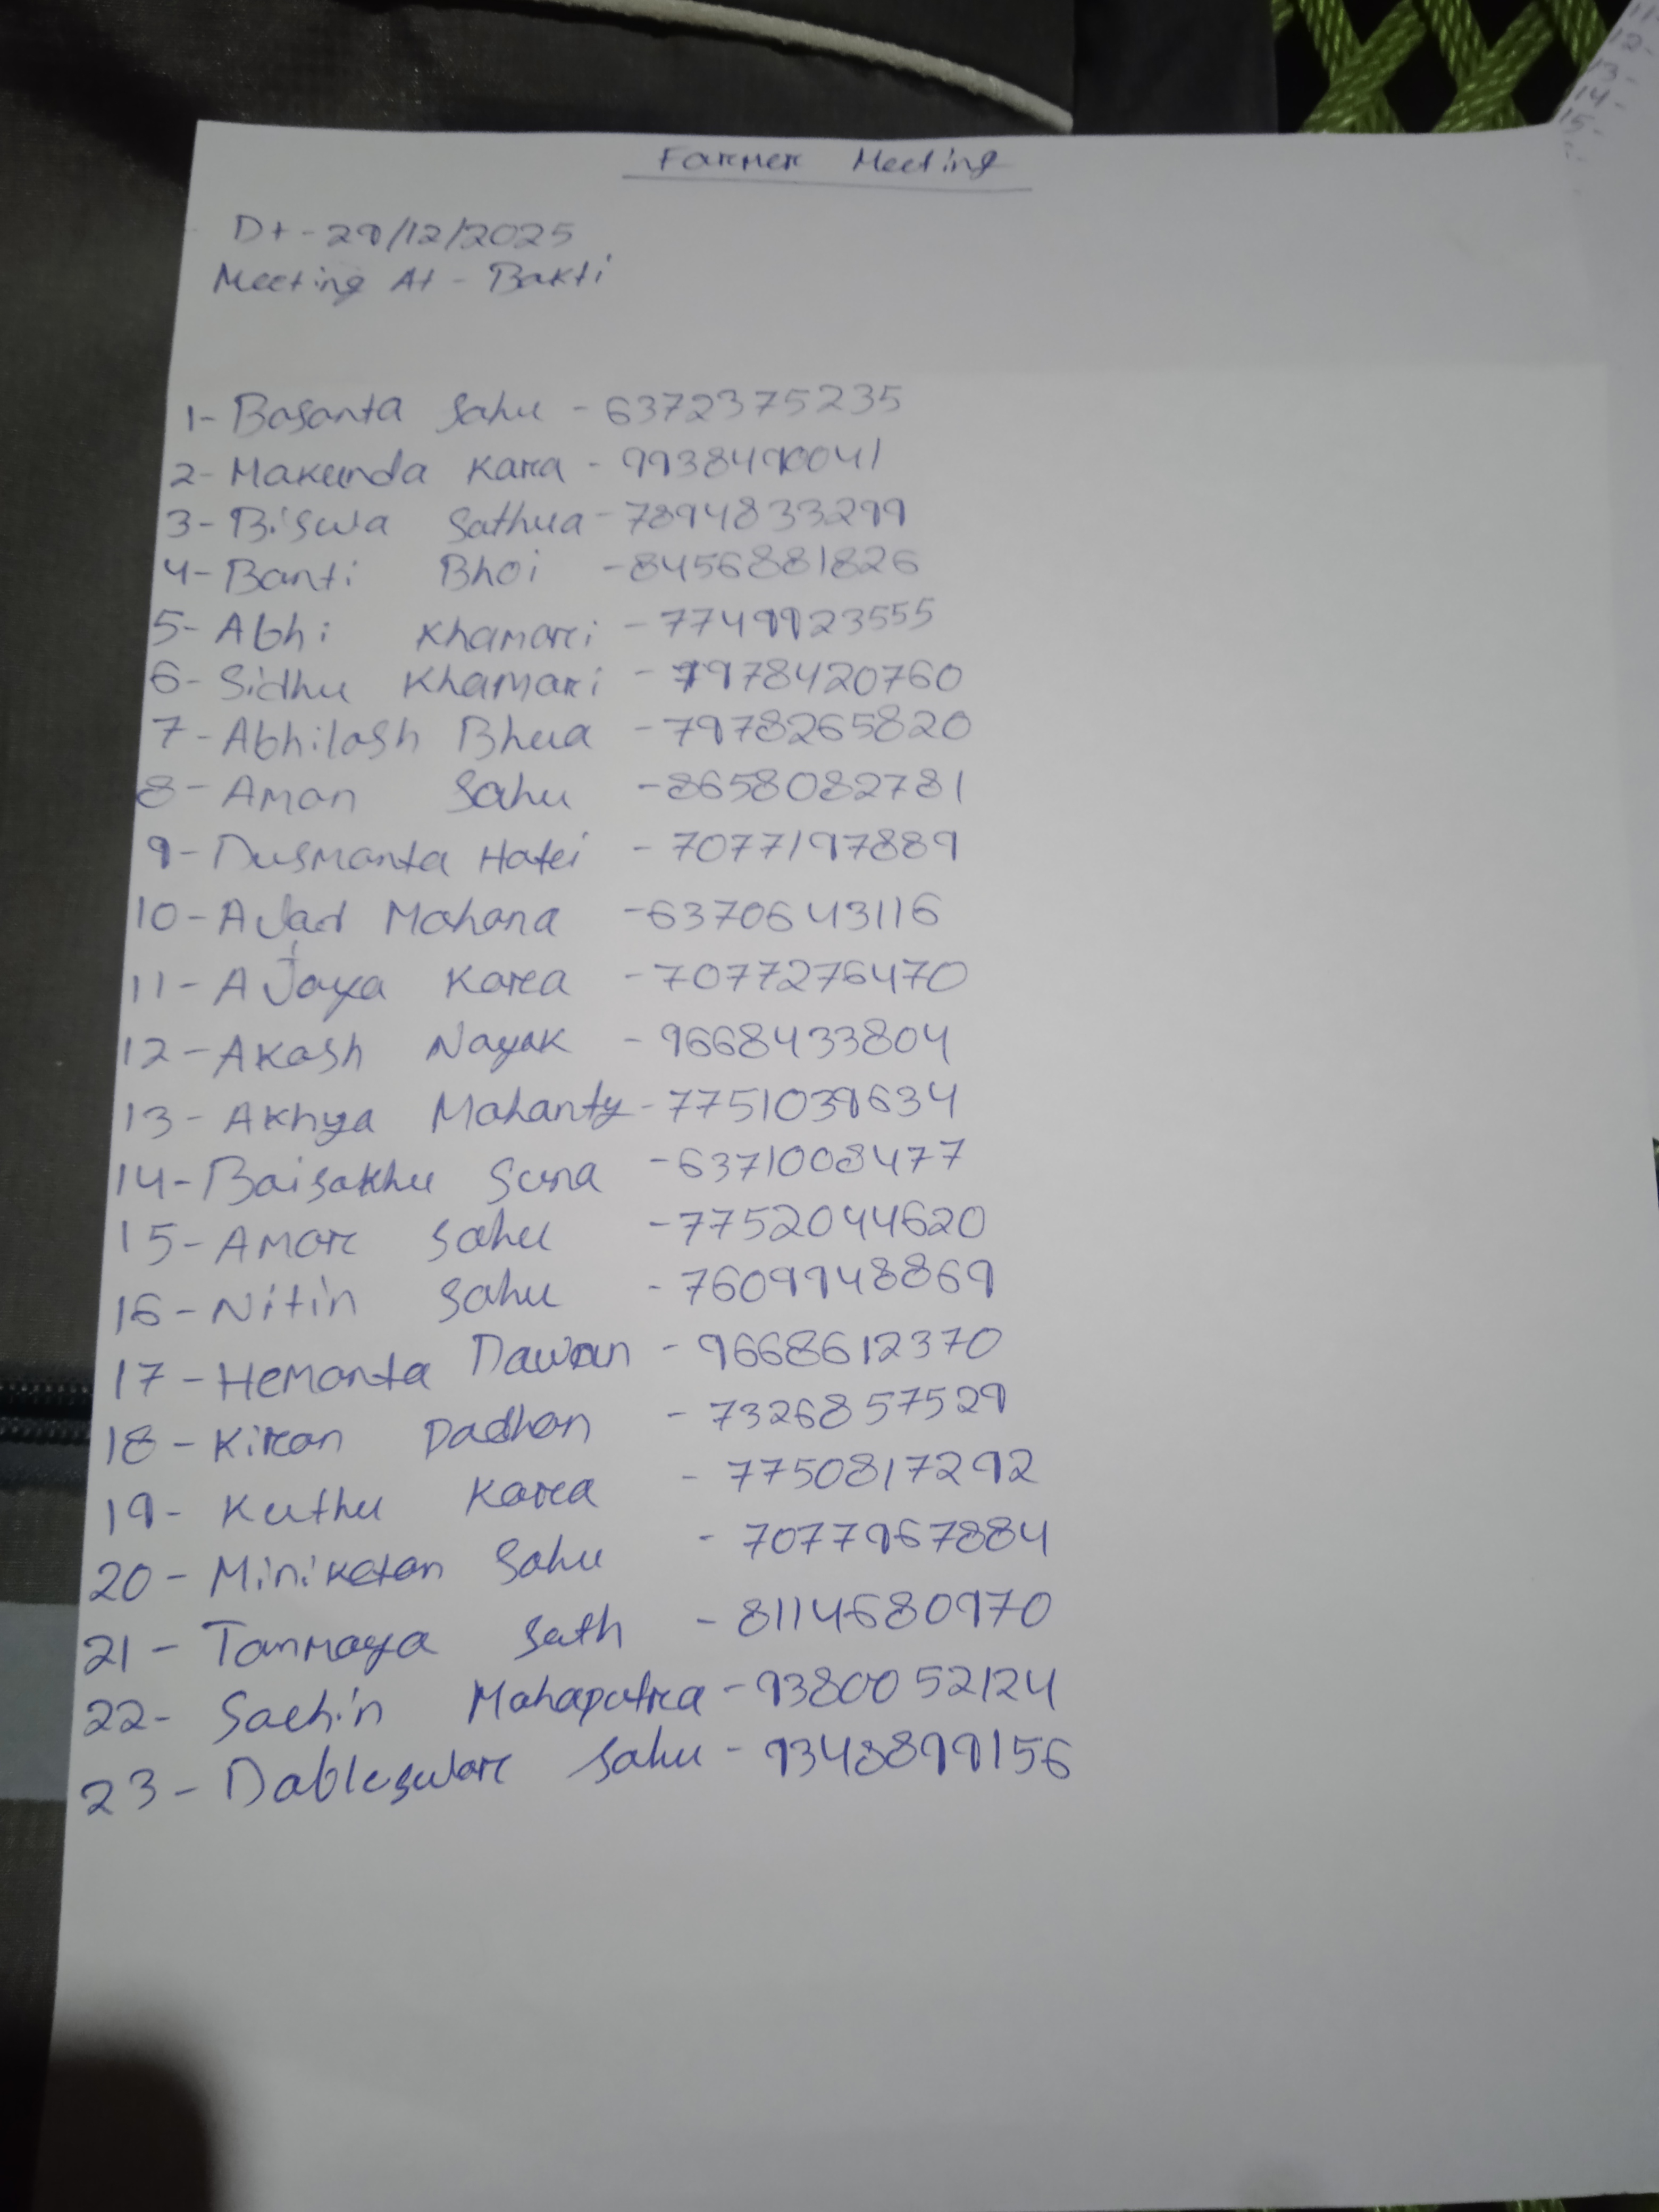 Farmer Meeting
Dt - 29/12/2025
Meeting At - Bakti
1- Basanta Sahu - 6372375235
2- Makunda Kara - 9938490041
3- Biswa Sathua - 7894833299
4- Banti Bhoi - 8456881826
5- Abhi Khamari - 7749923555
6- Sidhu Khamari - 7978420760
7- Abhilash Bhua - 7978265820
8- Aman Sahu - 8658082781
9- Dusmanta Hatei - 7077197889
10- AJad Mahana - 6370643116
11- AJaya Kara - 7077276470
12- Akash Nayak - 9668433804
13- Akhya Mahanty - 7751039634
14- Baisakhu Suna - 6371008477
15- Amar Sahu - 7752044620
16- Nitin Sahu - 7609948869
17- Hemanta Dawan - 9668612370
18- Kiran Padhan - 7326857529
19- Kuthu Kara - 7750817292
20- Miniketan Sahu - 7077967884
21- Tanmaya Sath - 8114680970
22- Sachin Mahapatra - 9380052124
23- Dableswar Sahu - 9348899156
11-
12-
13-
14-
15-